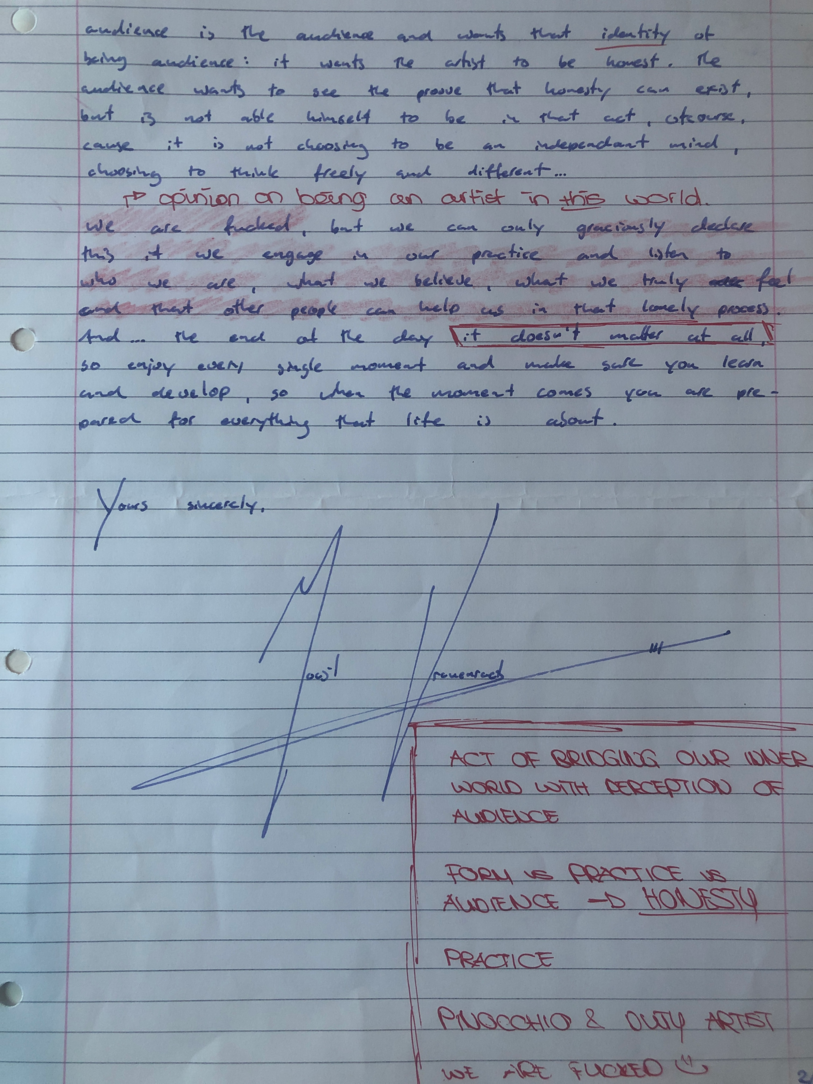 audience is the audience and wants that identity of
being audience: it wants the artist to be honest. The
audience wants to see the proove that honesty can exist,
but is not able himself to be in that act, ofcourse,
cause it is not choosing to be an independant mind,
choosing to think freely and different...
opinion on being an artist in this world.
We are fucked, but we can only graciously declare
this if we engage in our practice and listen to
who we are, what we believe, what we truly feel
and that other people can help us in that lonely process.
And... the end of the day it doesn't matter at all,
so enjoy every single moment and make sure you learn
and develop, so when the moment comes you are pre-
pared for everything that life is about.
Yours sincerely,
ACT OF BRIDGING OUR INNER
WORLD WITH PERCEPTION OF
AUDIENCE
FORM VS PRACTICE VS
AUDIENCE → HONESTY
PRACTICE
PINOCCHIO & DUTY ARTIST
WE ARE FUCKED
2